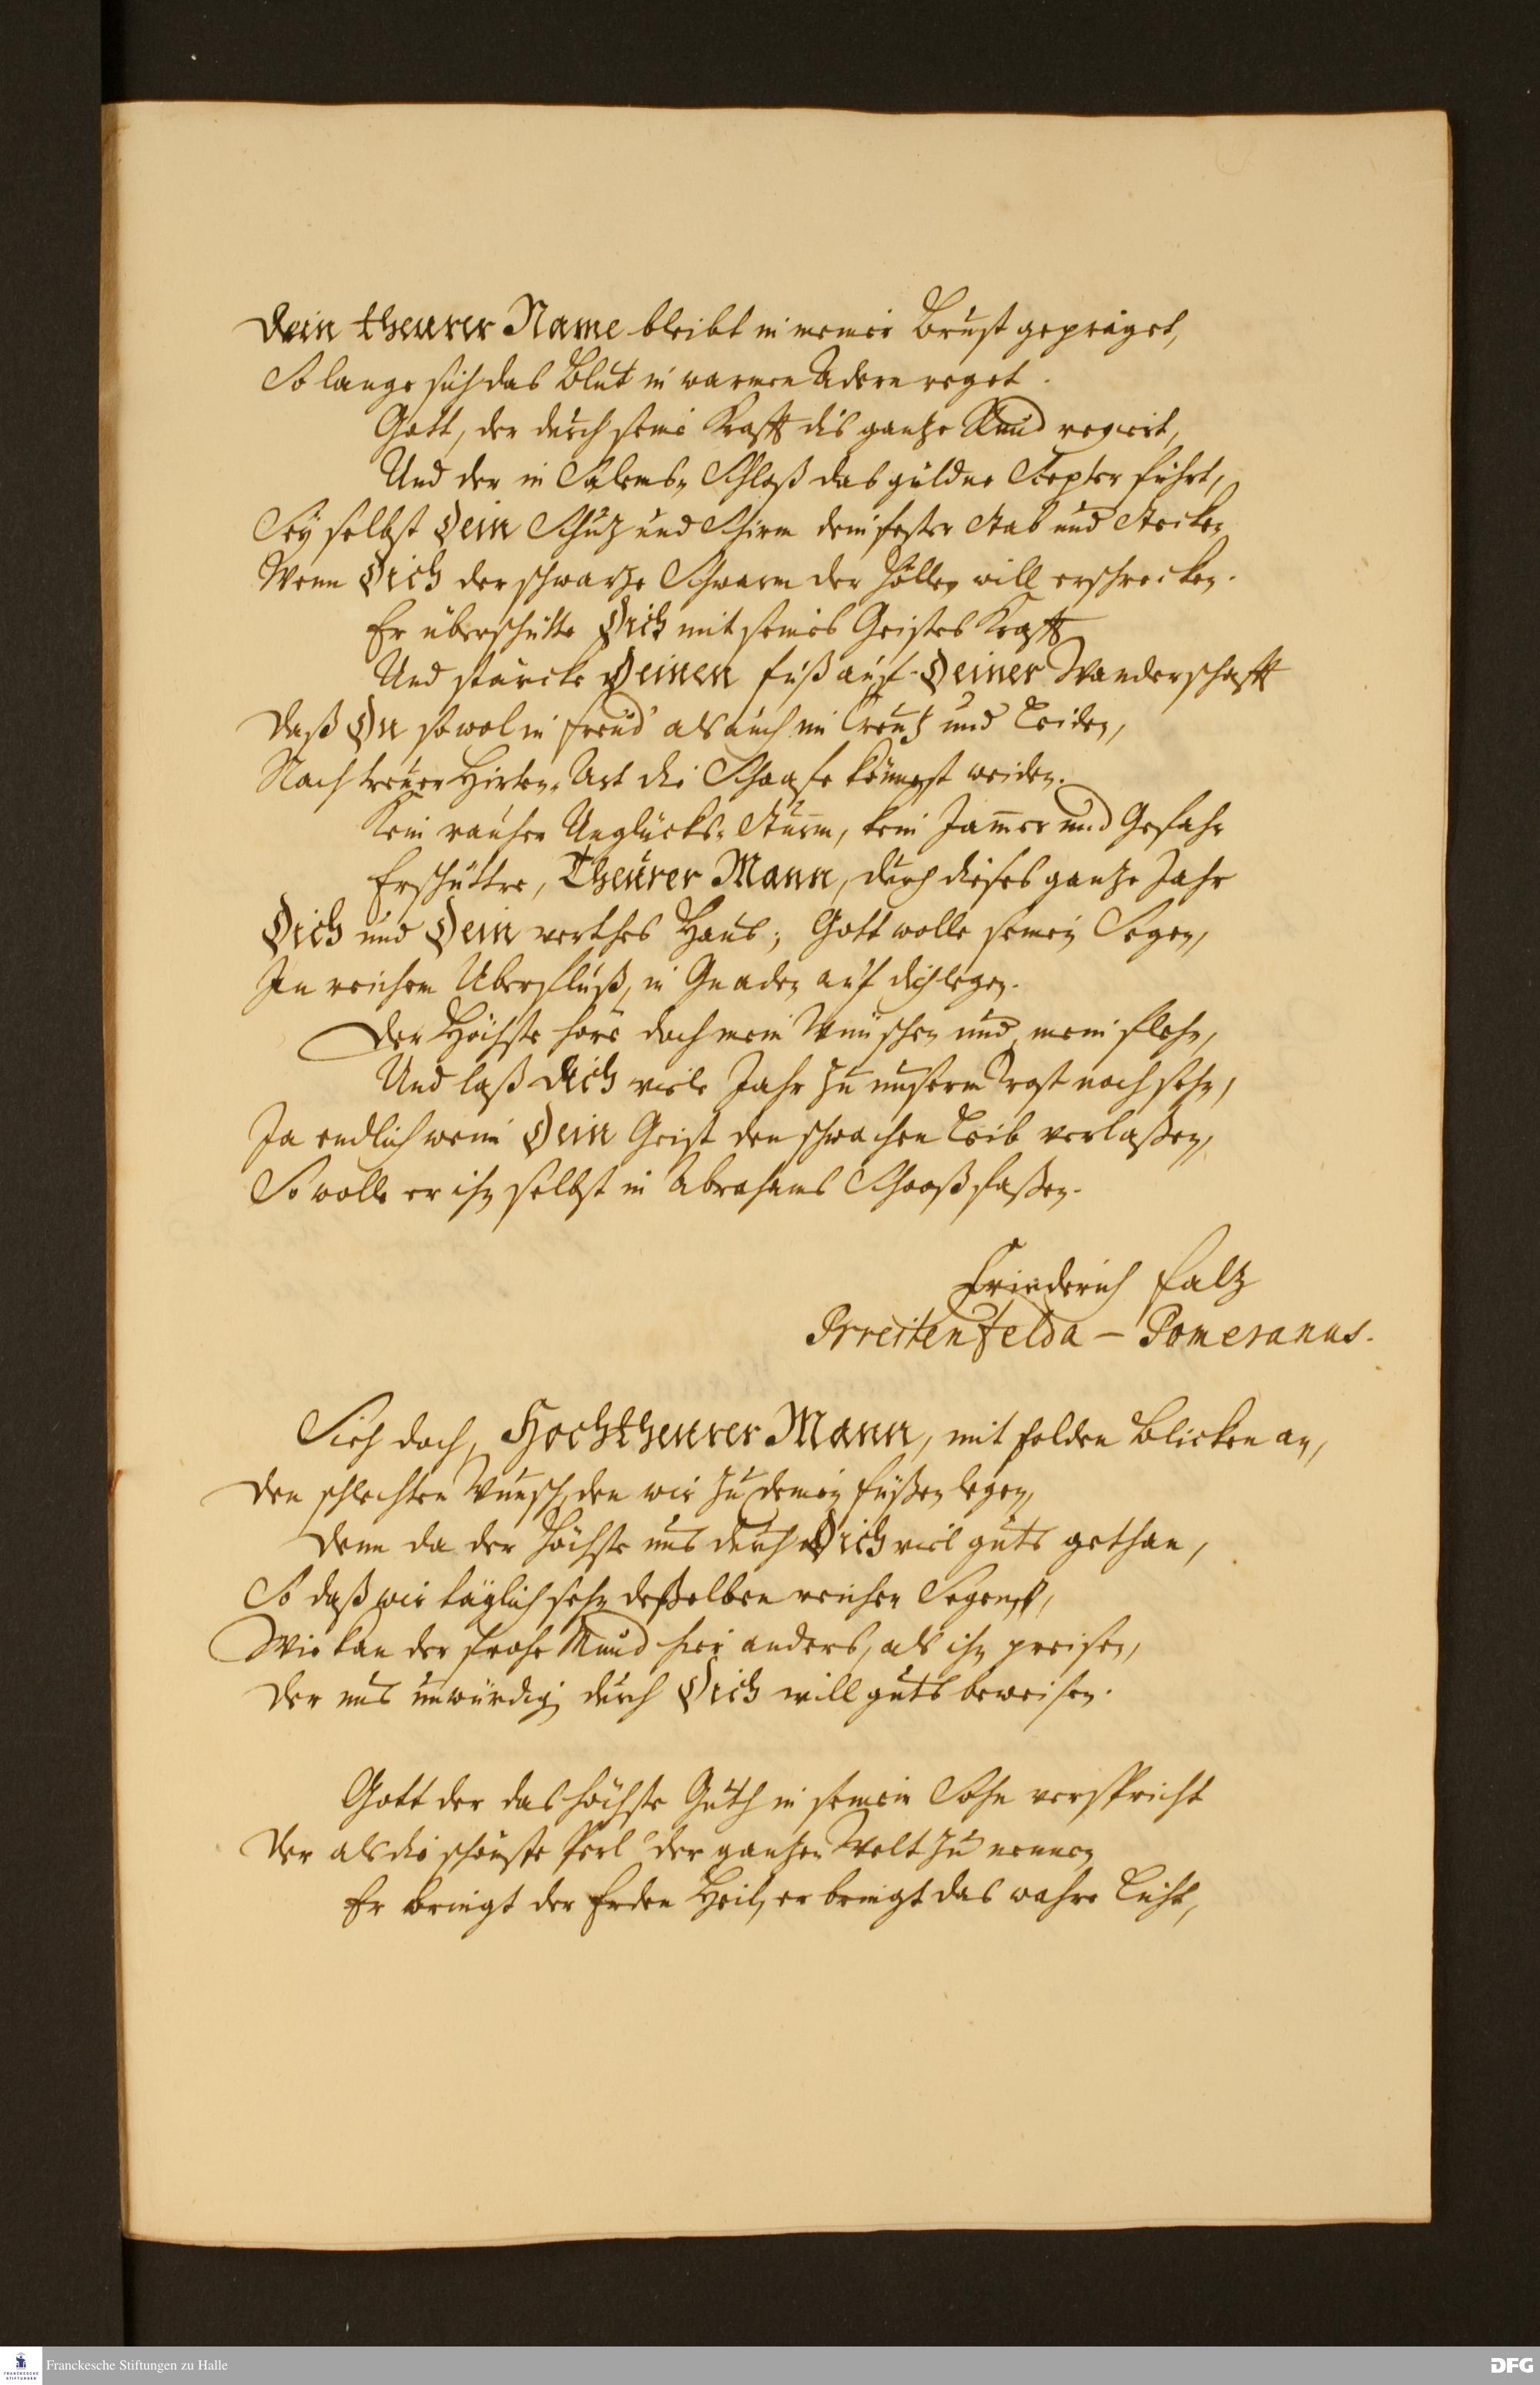 Dein theurer Name bleibt in meiner Brust gepräget,
So lange sich das Blut in warmen Adern reget.
Gott, der durch seine Krafft dis gantze Rund regiert,
Und der in Salems-Schloß das güldne Scepter führt,
Sey selbst Dein Schutz und Schirm dein fester Stab und Stecken
Wenn Dich der schwartze Schwarm der Höllen will erschrecken.
Er überschütte Dich mit seines Geistes Krafft
Und stärcke Deinen Fuß auf Deiner Wanderschafft
Daß Du sowol in Freud' als auch im Creutz und Leiden,
Nach treuer Hirten-Art die Schaafe könnest weiden.
Kein rauher Unglücks-Sturm, kein Jam̄er und Gefahr
Erschüttre, Theurer Mann, durch dieses gantze Jahr
Dich und Dein werthes Haus; Gott wolle seinen Segen,
In reichem Uberfluß, in Gnaden auf dich legen.
Der Höchste höre doch mein Wünschen und mein flehn,
Und laß Dich viele Jahr zu unserm Trost noch sehn,
Ja endlich wenn Dein Geist den schwachen Leib verlaßen,
So wolle er ihn selbst in Abrahams Schooß faßen.
Friederich Falz
Breitenfelda - Pomeranus.
Sieh doch, Hochtheurer Mann, mit holden Blicken an,
Den schlechten Wunsch, den wir zu deinen Füßen legen,
Denn da der Höchste uns durch Dich viel guts gethan,
So daß wir täglich sehn deßelben reichen Segen,
Wie kan der frohe Mund hier anders, als ihn preisen,
Der uns unwürdig durch Dich will guts beweisen.
Gott der das höchste Guth in seinem Sohn verspricht
Der als die schönste Perl' der gantzen Welt zu nennen
Er bringt der Erden Heil, er bringt das wahre Licht,
Franckesche Stiftungen zu Halle
FRANCKESCHE
STIFTUNGEN
DFG